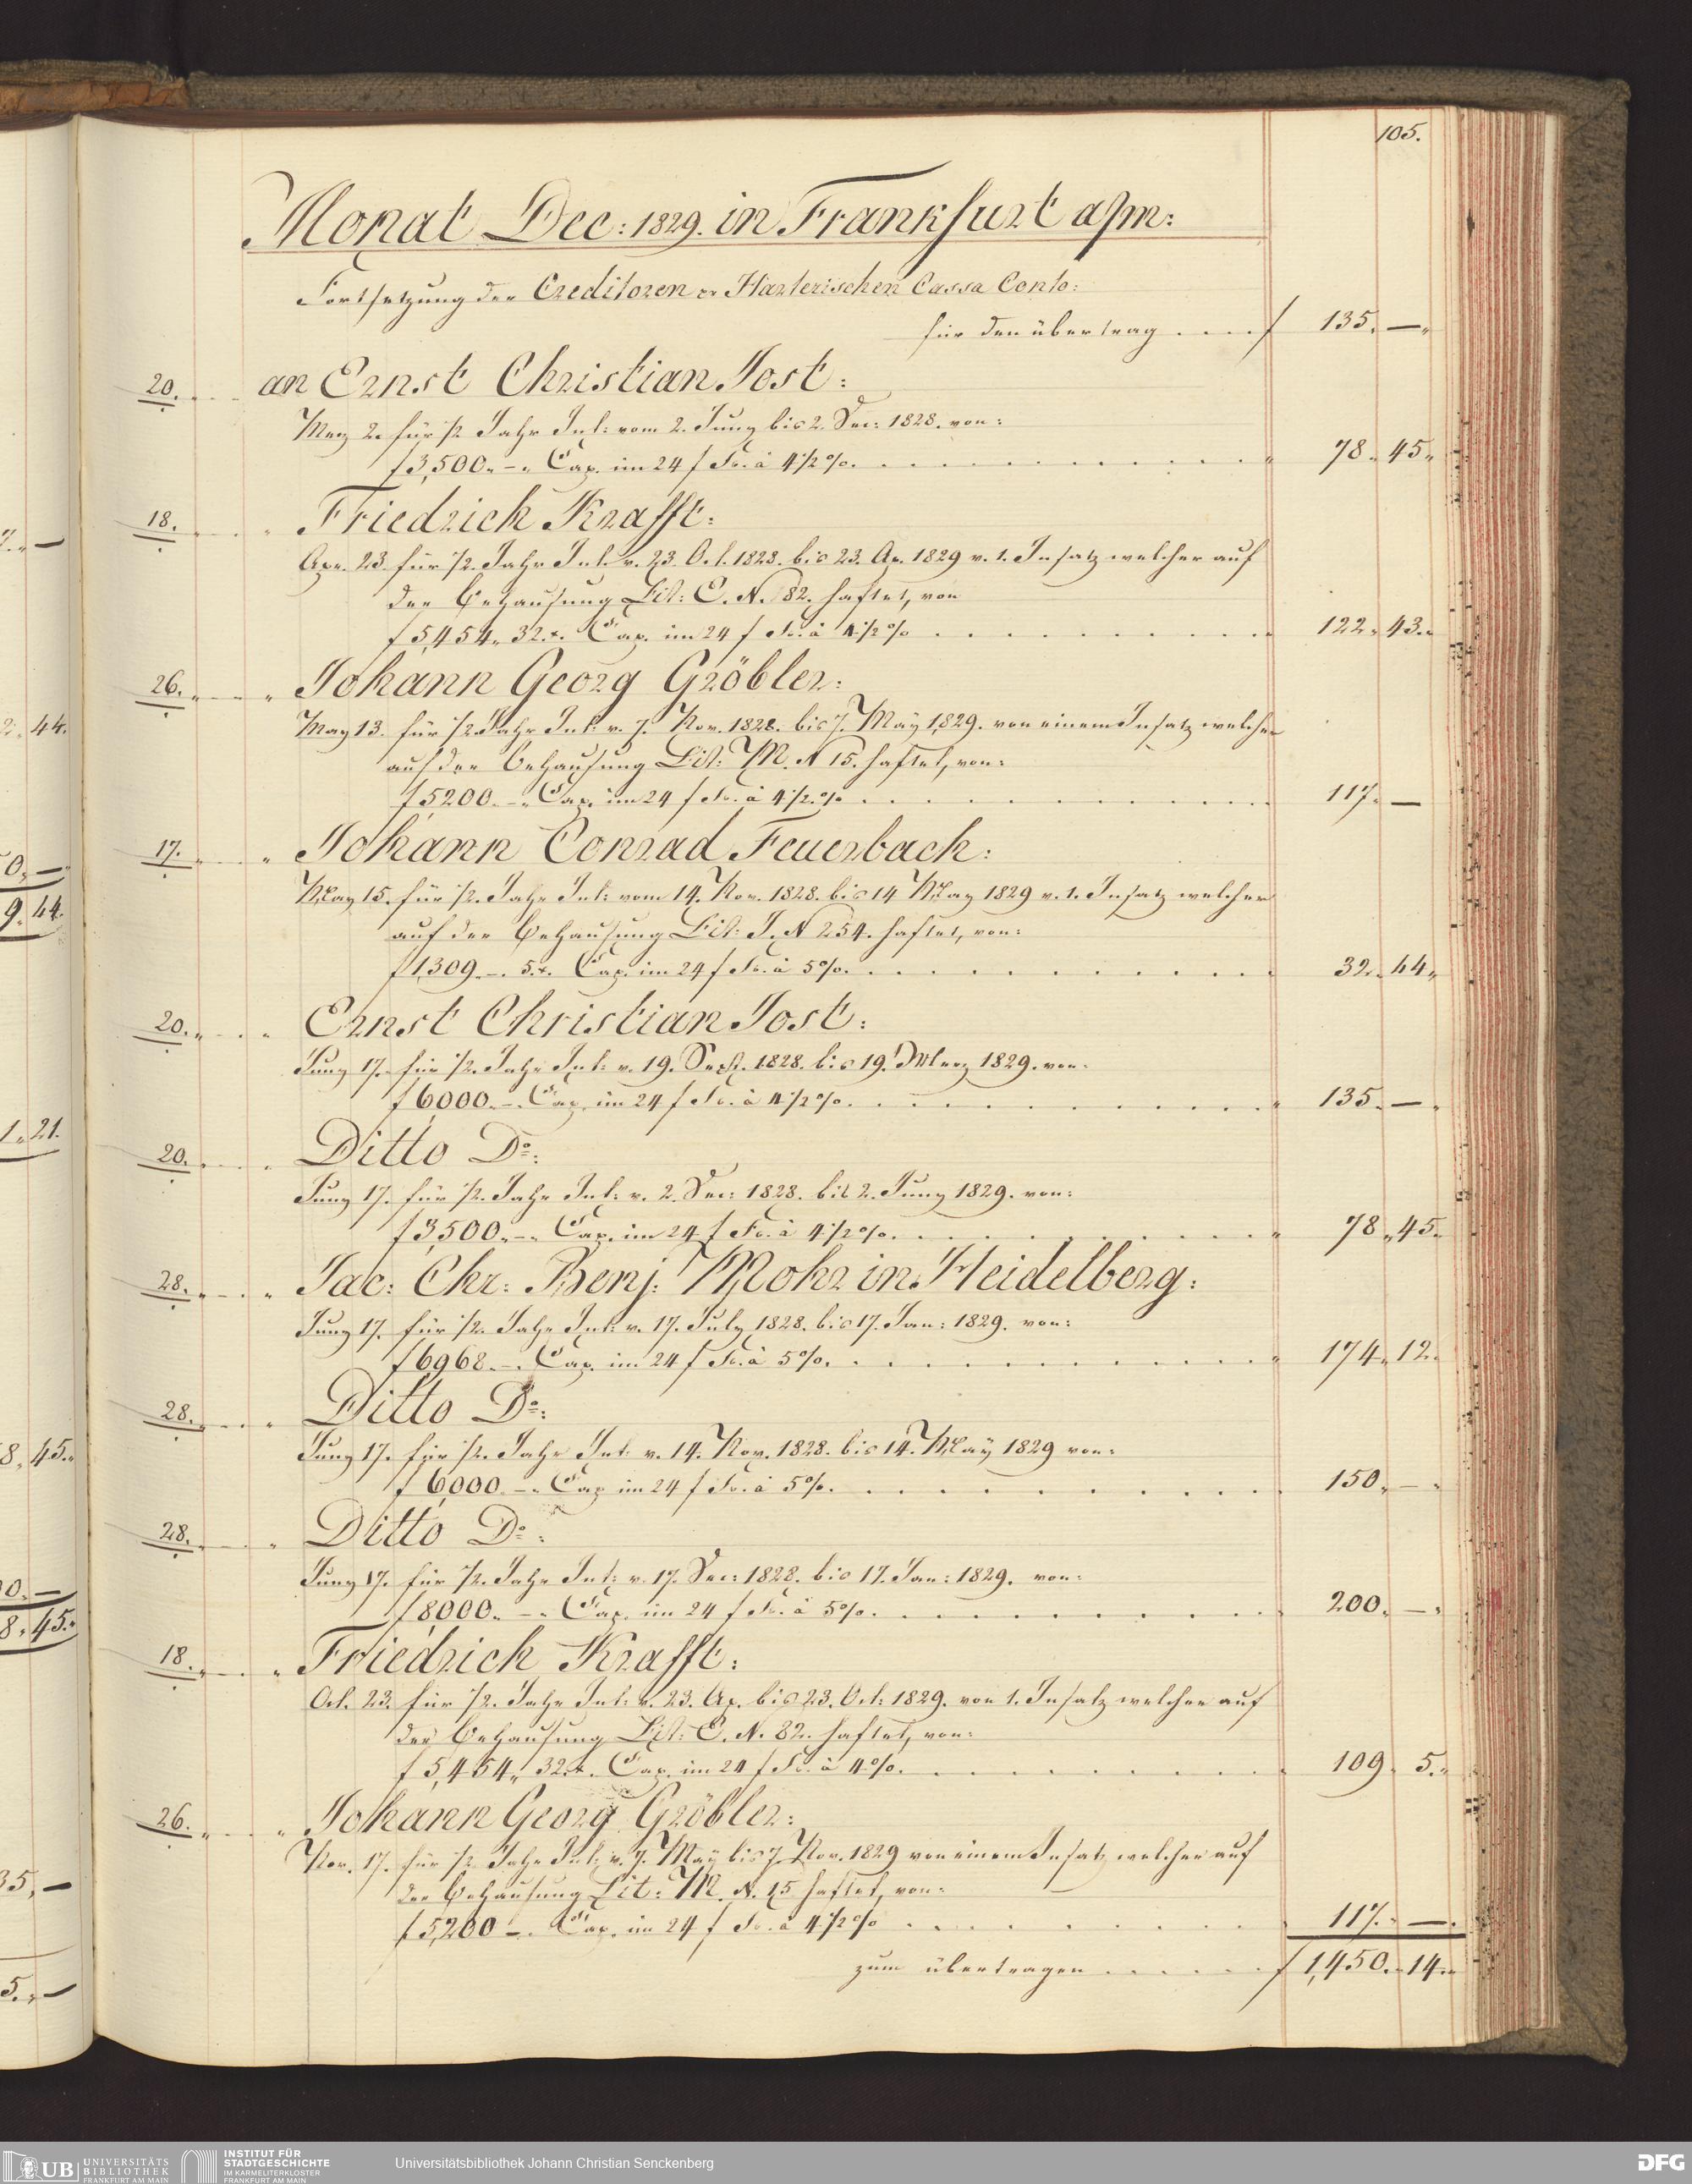 105.
Monat Dec: 1829. in Frankfurt a/m:
Fortsetzung der Creditoren pr Harterischen Cassa Conto:
für den übertrag .... f 135. —
20. an Ernst Christian Jost:
Merz 2. für 1/2 Jahr Int: vom 2. Juny bis 2. Dec: 1828. von:
f 3,500. – Cap. im 24 f Fs. à 4 1/2 %. 78. 45.
18. " Friedrich Krafft:
Apr. 23. für 1/2 Jahr Int: v. 23. Oct. 1828. bis 23. Ap. 1829 v. 1. Insatz welcher auf
der Behausung Lit: C. N. 82. haftet, von
f 5,454. 32. x. Cap. im 24 f Fs. à 4 1/2 % 122. 43.
26. " Johann Georg Gröbler:
May 13. für 1/2 Jahr Int: v. 7. Nov. 1828. bis 7. May 1829. von einem Insatz welcher
auf der Behausung Lit: M. N 15. haftet, von:
f 5200. – Cap. im 24 f Fs. à 4 1/2 % 117. —
17. " Johann Conrad Feuerbach:
May 15. für 1/2 Jahr Int: vom 14. Nov. 1828. bis 14 May 1829 v. 1. Insatz welcher
auf der Behausung Lit: J. N 254. haftet, von:
f 1,309. – 5. x. Cap. im 24 f Fs. à 5 %. 32. 44.
20. " Ernst Christian Jost:
Juny 17. für 1/2 Jahr Int: v. 19. Sept. 1828. bis 19. Merz 1829. von.
f 6,000. – Cap. im 24 f Fs. à 4 1/2 %. 135. —
20. " Ditto Do:
Juny 17. für 1/2 Jahr Int: v. 2. Dec: 1828. bis 2. Juny 1829. von:
f 3,500. – Cap. im 24 f Fs. à 4 1/2 %. 78. 45.
28. " Jac: Chr: Benj: Mohr in Heidelberg:
Juny 17. für 1/2 Jahr Int: v. 17. July 1828. bis 17. Jan: 1829. von:
f 6968. – Cap. im 24 f Fs. à 5 %. 174. 12.
28. " Ditto Do:
Juny 17. für 1/2 Jahr Int. v. 14. Nov. 1828. bis 14. May 1829 von:
f 6,000 – Cap im 24 f Fs. à 5 %. 150. —
28. " Ditto Do:
Juny 17. für 1/2 Jahr Int: v. 17. Dec: 1828. bis 17. Jan: 1829. von:
f 8000. – Cap. im 24 f Fs. à 5 %. 200. —
18. " Friedrich Krafft:
Oct. 23. für 1/2 Jahr Int: v. 23. Ap. bis 23. Oct: 1829. von 1. Insatz welcher auf
der Behausung Lit: C. N. 82. haftet, von:
f 5,454. 32. x. Cap. im 24 f Fs. à 4 %. 109. 5.
26. " Johann Georg Gröbler:
Nov. 17. für 1/2 Jahr Int: v. 7. May bis 7. Nov. 1829 von einem Insatz welcher auf
der Behausung Lit: M. N. 15 haftet, von:
f 5,200 – Cap. im 24 f Fs. à 4 1/2 % 117. —
zum übertragen ...... f 1,450. 14.
7. —
44.
0. —
9. 44.
1. 21.
8. 45.
0. —
8. 45.
35. —
5. —
UB UNIVERSITÄTS
BIBLIOTHEK
FRANKFURT AM MAIN
INSTITUT FÜR
STADTGESCHICHTE
IM KARMELITERKLOSTER
FRANKFURT AM MAIN
Universitätsbibliothek Johann Christian Senckenberg
DFG